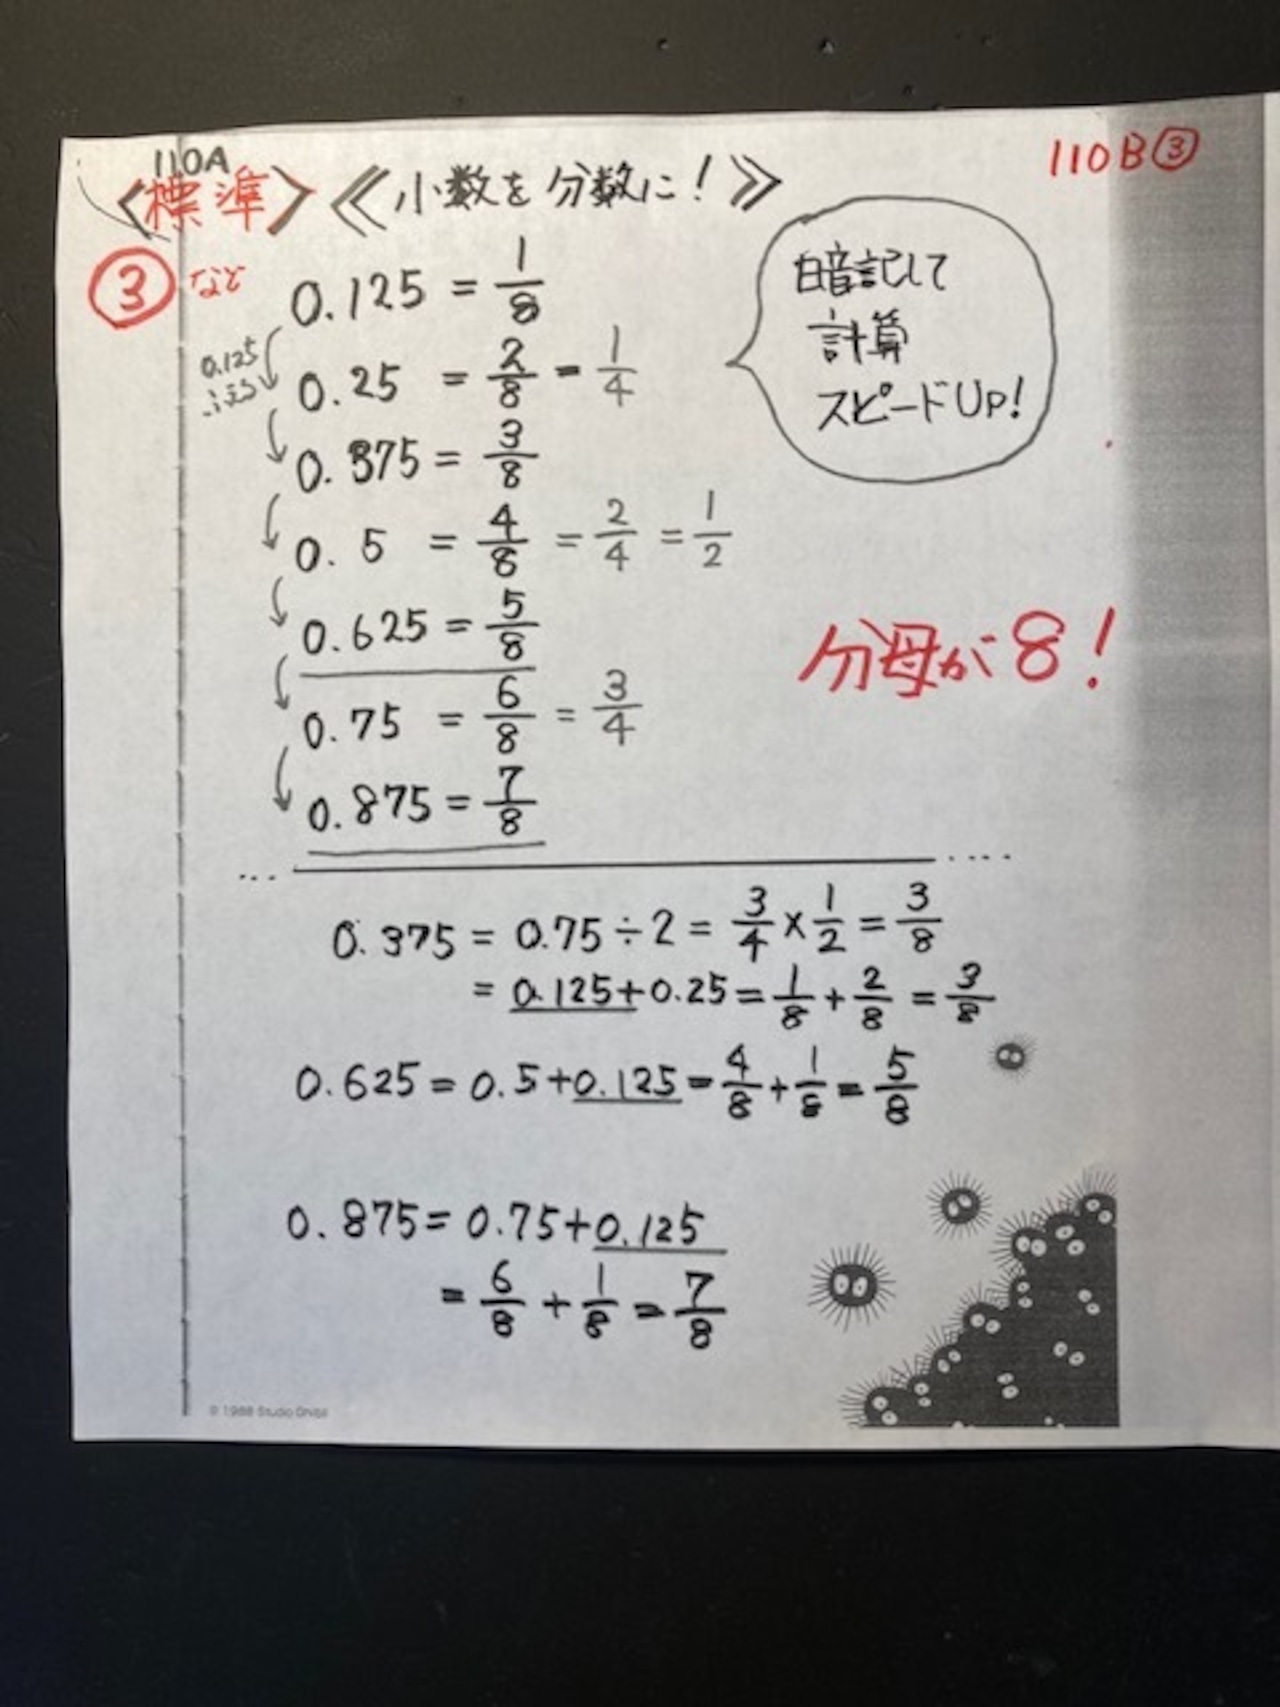 110A
110B③
〈標準〉《小数を分数に!》
③ など
0.125 = 1/8
0.125
ふえる
0.25 = 2/8 = 1/4
0.375 = 3/8
0.5 = 4/8 = 2/4 = 1/2
0.625 = 5/8
0.75 = 6/8 = 3/4
0.875 = 7/8
暗記して
計算
スピードUp!
分母が8!
0.375 = 0.75÷2 = 3/4 × 1/2 = 3/8
= 0.125+0.25 = 1/8 + 2/8 = 3/8
0.625 = 0.5+0.125 = 4/8 + 1/8 = 5/8
0.875 = 0.75+0.125
= 6/8 + 1/8 = 7/8
© 1988 Studio Ghibli